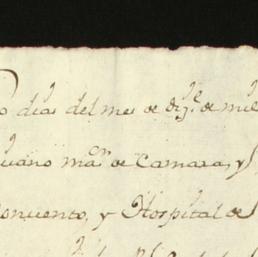 dias del mes de diz.e de mil
cuano ma.or de Camara, y
Conuento, y Hospital de S